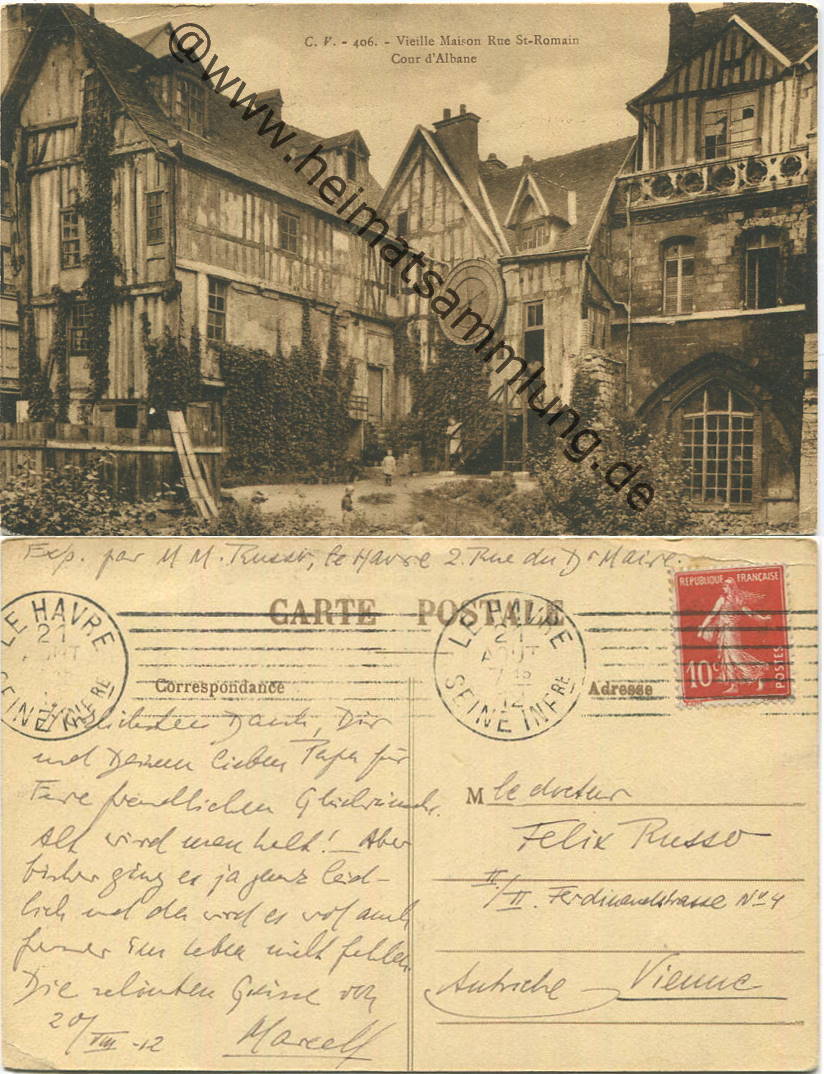 C. V. - 406. - Vieille Maison Rue St-Romain
Cour d'Albane
@www.heimatsammlung.de
Exp. par M M. Russo, Le Havre 2. Rue du Dr Maire.
CARTE POSTALE
LE HAVRE
21
AOUT
SEINE INFRE
LE HAVRE
21
AOUT
SEINE INFRE
REPUBLIQUE FRANÇAISE
10c
POSTES
Correspondance
Adresse
Herzlichsten Dank, Dir
und Deinem lieben Papa für
Eure freundlichen Glückwünsche.
Alt wird man halt! Aber
bisher ging es ja ganz leid-
lich und da wird es wol auch
ferner im Leben nicht fehlen
Die schönsten Grüsse von
20/VIII -12 Marcell
M le docteur
Felix Russo
II/II. Ferdinandstrasse No 4
Autriche Vienne